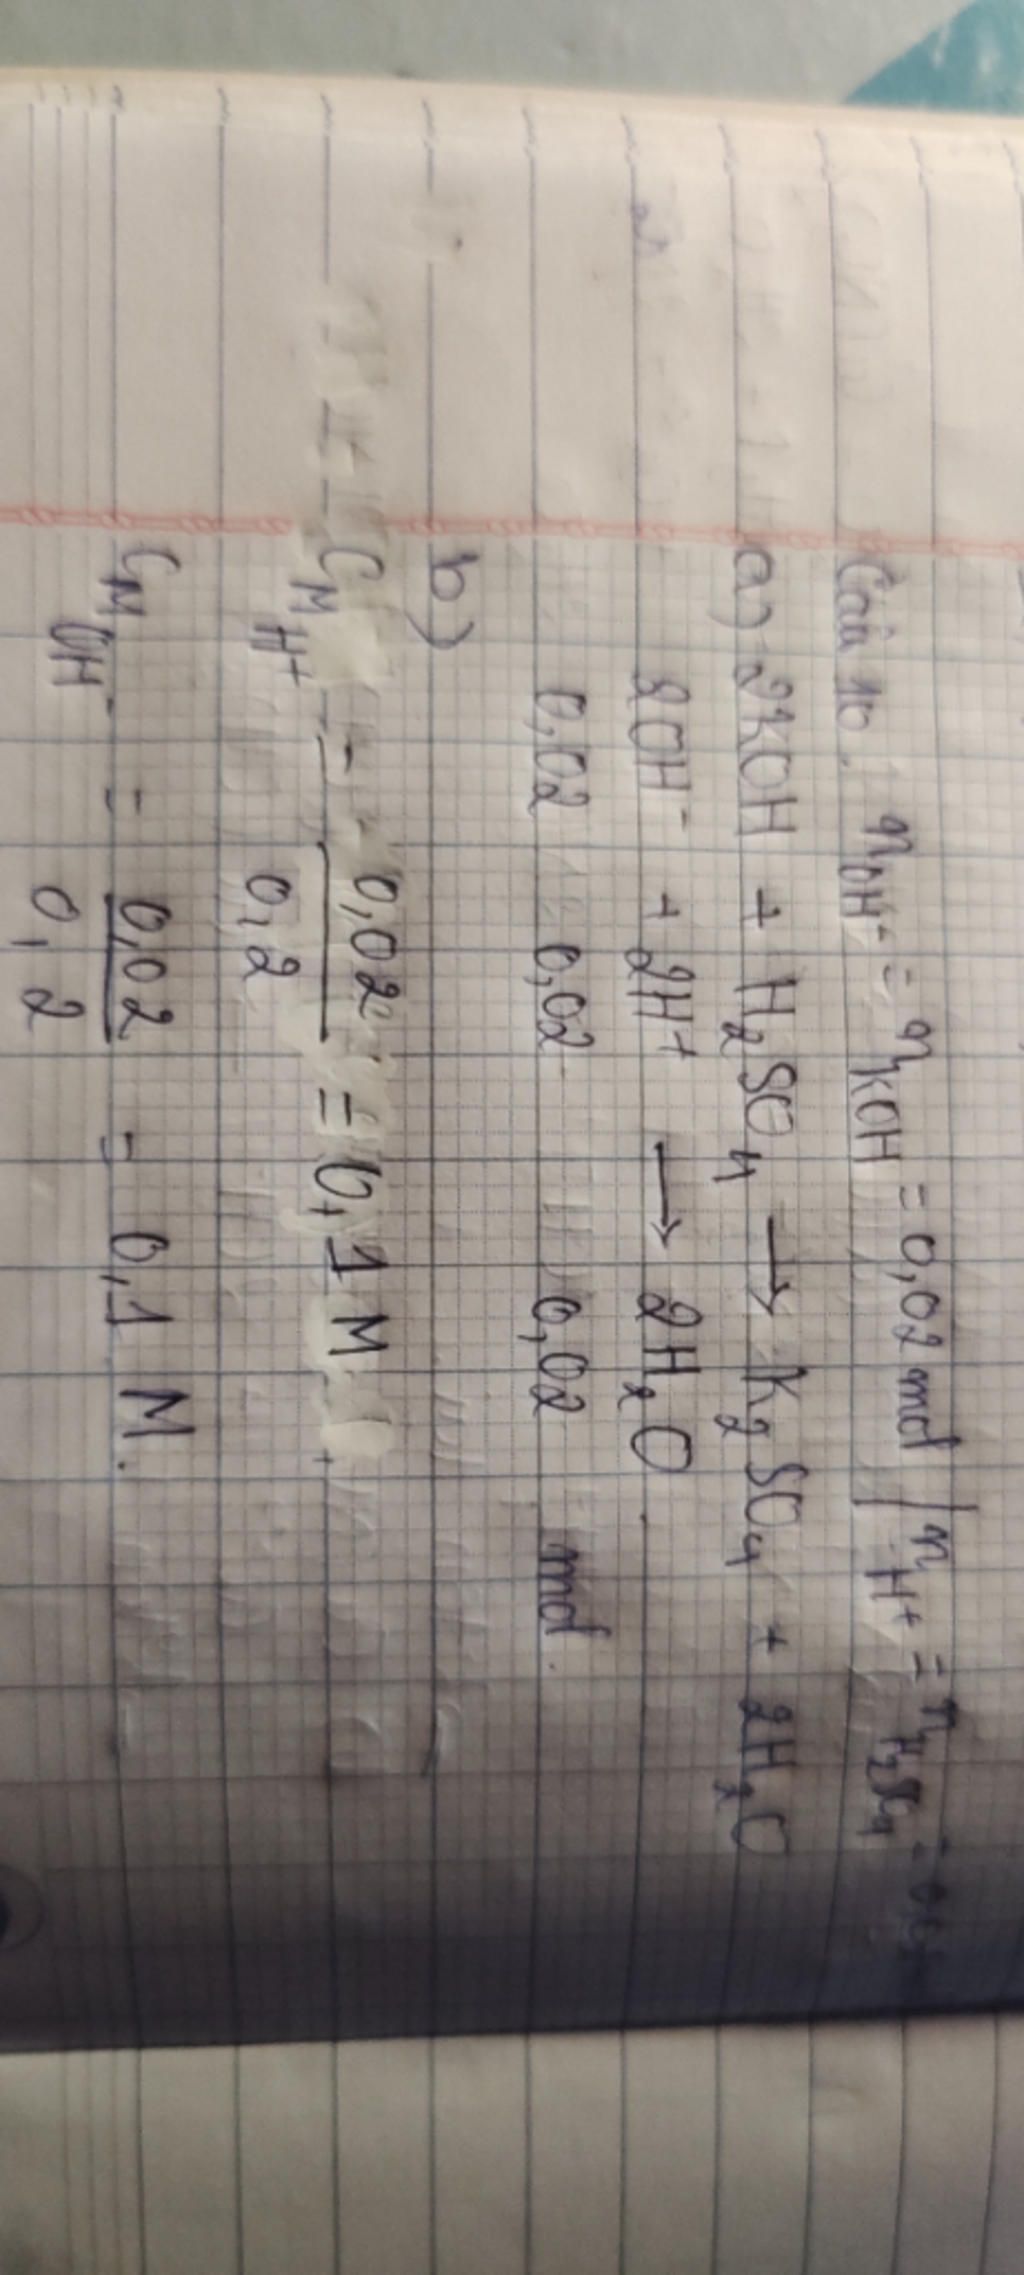 Câu 10. nOH- = nKOH = 0,02 mol | nH+ = nH2SO4 =
a) 2KOH + H2SO4 → K2SO4 + 2H2O
2OH- + 2H+ → 2H2O
0,02 0,02 0,02 mol.
b)
CM H+ = 0,02/0,2 = 0,1 M
CM OH- = 0,02/0,2 = 0,1 M.